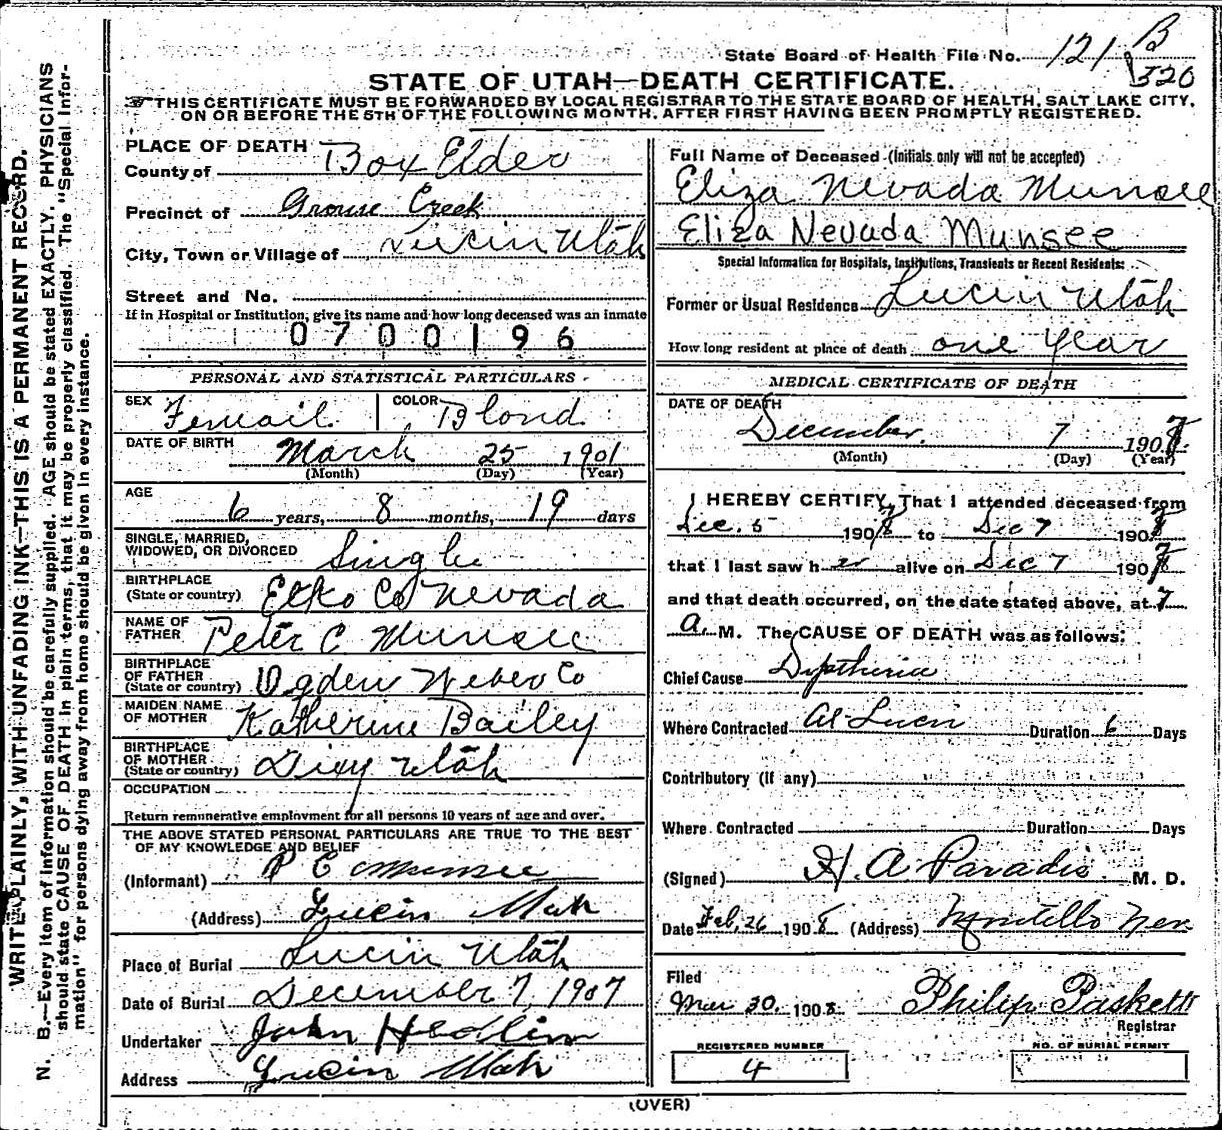 State Board of Health File No. 121 B
320
STATE OF UTAH—DEATH CERTIFICATE.
THIS CERTIFICATE MUST BE FORWARDED BY LOCAL REGISTRAR TO THE STATE BOARD OF HEALTH, SALT LAKE CITY,
ON OR BEFORE THE 5TH OF THE FOLLOWING MONTH, AFTER FIRST HAVING BEEN PROMPTLY REGISTERED.
WRITE PLAINLY, WITH UNFADING INK—THIS IS A PERMANENT RECORD.
N. B.—Every item of information should be carefully supplied. AGE should be stated EXACTLY. PHYSICIANS
should state CAUSE OF DEATH in plain terms, that it may be properly classified. The "Special Infor-
mation" for persons dying away from home should be given in every instance.
PLACE OF DEATH
County of Box Elder
Precinct of Grouse Creek
City, Town or Village of Lucin Utah
Street and No.
If in Hospital or Institution, give its name and how long deceased was an inmate
0700196
PERSONAL AND STATISTICAL PARTICULARS
SEX Femail COLOR Blond
DATE OF BIRTH March 25 1901
(Month) (Day) (Year)
AGE
6 years, 8 months, 19 days
SINGLE, MARRIED,
WIDOWED, OR DIVORCED Single
BIRTHPLACE
(State or country) Elko Co Nevada
NAME OF
FATHER Peter C Munsee
BIRTHPLACE
OF FATHER
(State or country) Ogden Weber Co
MAIDEN NAME
OF MOTHER Katherine Bailey
BIRTHPLACE
OF MOTHER
(State or country) Dixy Utah
OCCUPATION
Return remunerative employment for all persons 10 years of age and over.
THE ABOVE STATED PERSONAL PARTICULARS ARE TRUE TO THE BEST
OF MY KNOWLEDGE AND BELIEF
(Informant) P C Munsee
(Address) Lucin Utah
Place of Burial Lucin Utah
Date of Burial December 7, 1907
Undertaker John Hedlin
Address Lucin Utah
Full Name of Deceased (Initials only will not be accepted)
Eliza Nevada Munsee
Eliza Nevada Munsee
Special Information for Hospitals, Institutions, Transients or Recent Residents:
Former or Usual Residence Lucin Utah
How long resident at place of death one Year
MEDICAL CERTIFICATE OF DEATH
DATE OF DEATH
December 7 190
(Month) (Day) (Year)
I HEREBY CERTIFY, That I attended deceased from
Dec. 5 190 to Dec 7 190
that I last saw her alive on Dec 7 190
and that death occurred, on the date stated above, at 7
A. M. The CAUSE OF DEATH was as follows:
Chief Cause Diptheria
Where Contracted At Lucin Duration 6 Days
Contributory (if any)
Where Contracted Duration Days
(Signed) H. A. Paradis M. D.
Date Feb. 26 1908 (Address) Montello Nev
Filed
Mar 30. 1908 Philip Paskett
Registrar
REGISTERED NUMBER
4
NO. OF BURIAL PERMIT
(OVER)